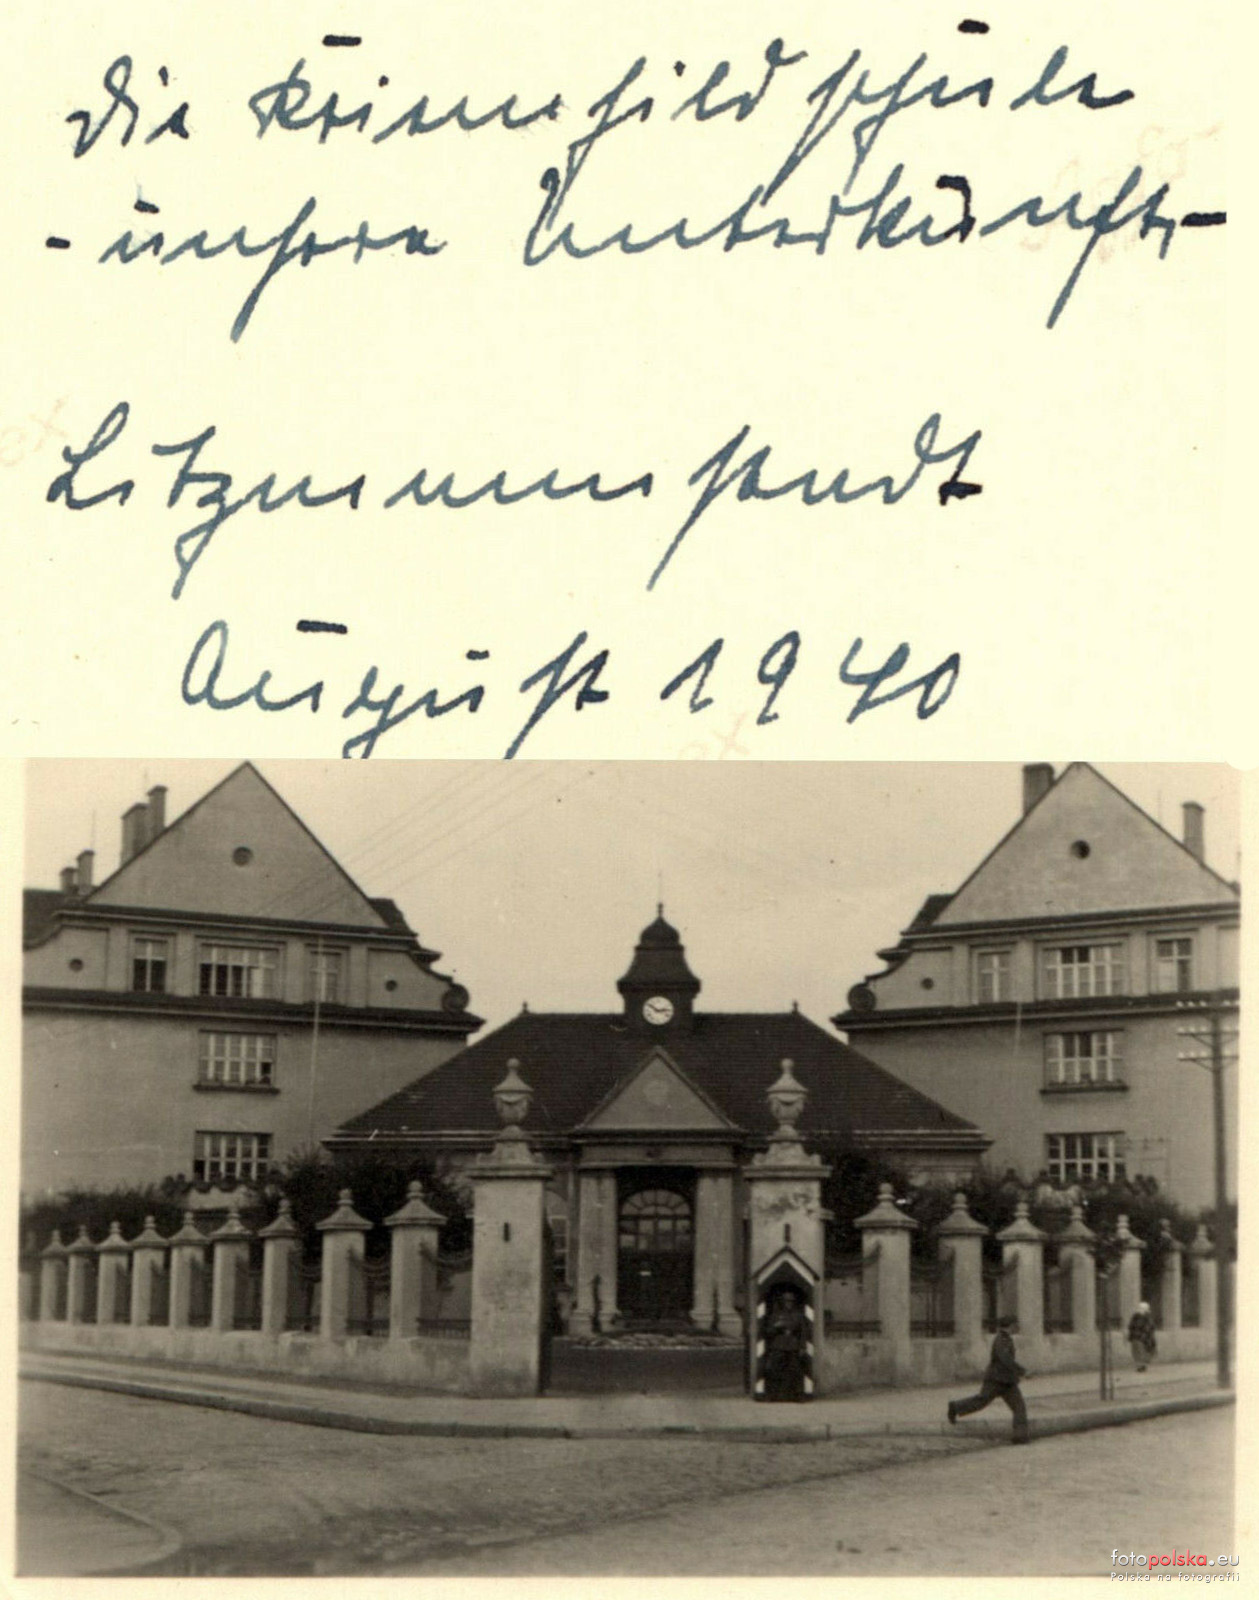 Die Kriemhildschule
- unsere Unterkunft, -
Litzmannstadt
August 1940
fotopolska.eu
Polska na fotografii